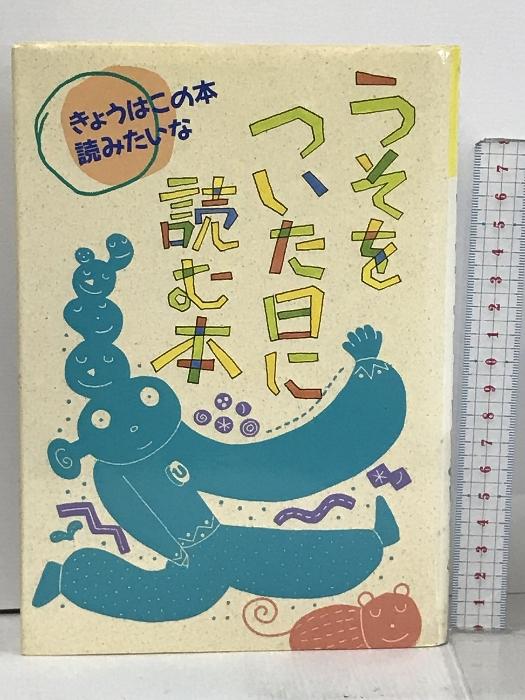 きょうはこの本
読みたいな
うそを
ついた日に
読む本
う
7
6
5
4
3
2
1
0
9
8
7
6
5
4
3
2
1